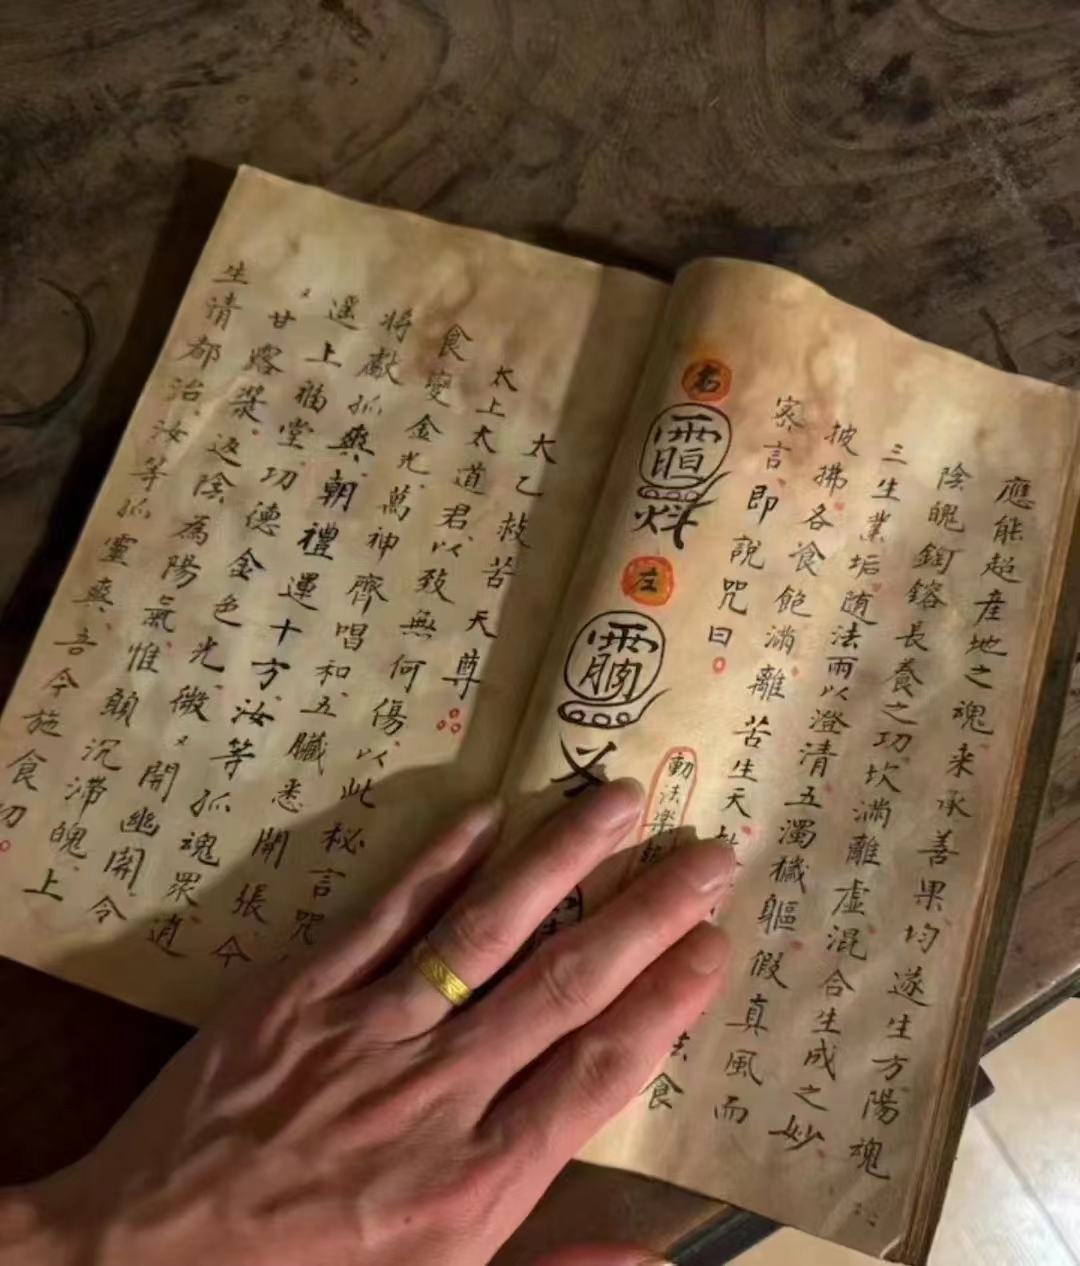 應能超產地之魂来承善果均遂生方陽魂
陰魄鈞鎔長養之功坎滿離虛混合生成之妙
三生業垢随法雨以澄清五濁穢軀假真風而
披拂各飡飽滿離苦生天
法食
密言即說呪曰
動法樂
右
左
太乙救苦天尊
太上太道君以致無何傷以此秘言咒
食變金光萬神齊唱和五臟悉開張今
將獻孤爽朝禮運十方汝等孤魂眾逍
遥上福堂功德金色光微々開幽開今
々甘露漿返陰為陽氣惟願沉滯魄上
生清都治汝等孤靈爽吾今施食切